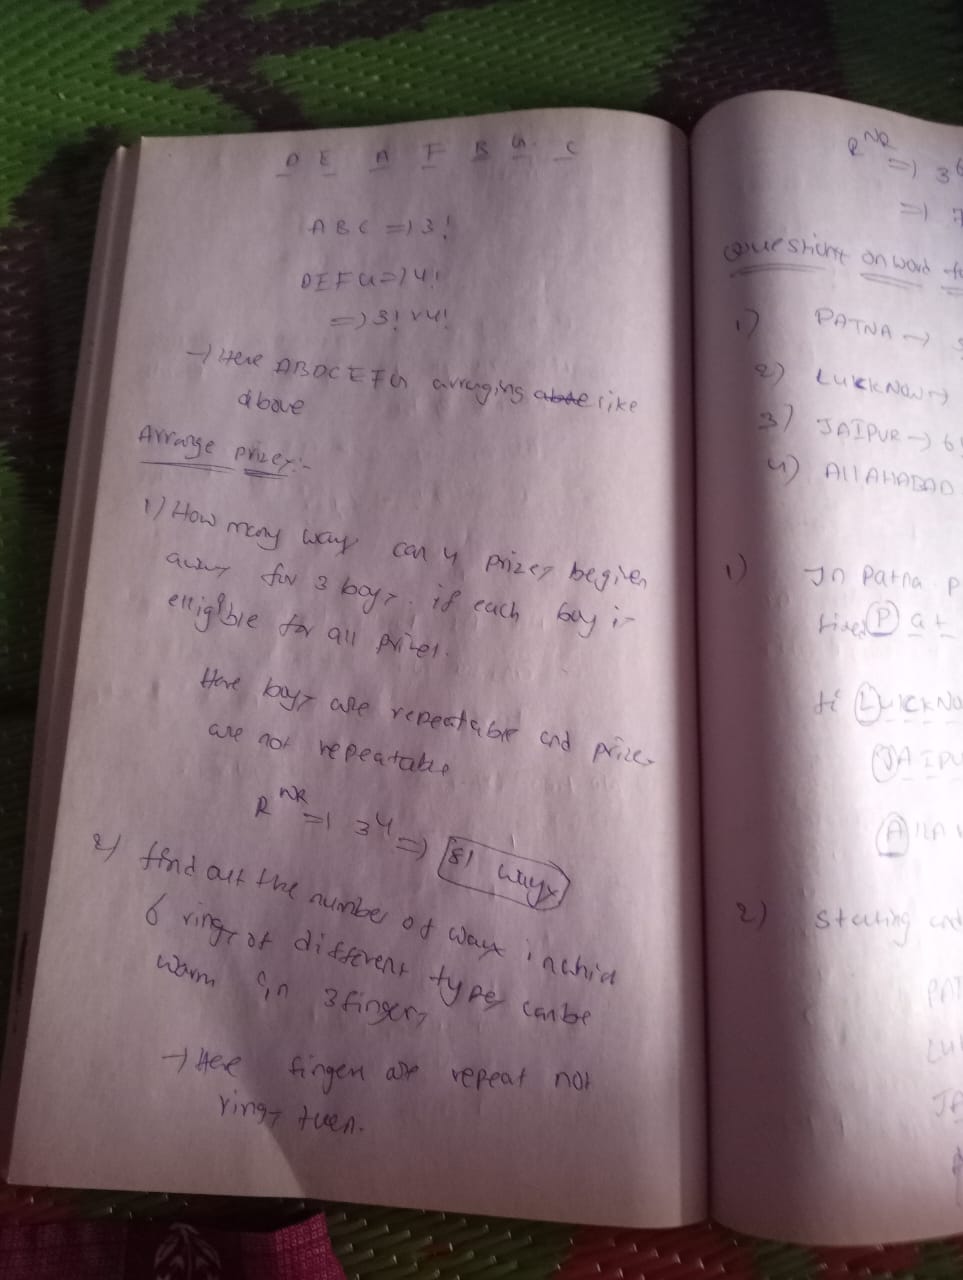 D E A F B G C
ABC => 3!
DEFG => 4!
=> 3! x 4!
→ Here ABDCEFG arranging like
above
Arrange prizes:-
1) How many ways can 4 prizes be given
away for 3 boys. if each boy is
elligible for all prizes.
Here boys are repeatable and prizes
are not repeatable
R^NR => 3^4 => 81 ways
2) find out the number of ways in which
6 rings of different types can be
warn in 3 fingers
→ Here fingers are repeat not
rings then.
R^NR => 3^6
=> 7
Questions on word
1) PATNA →
2) LUCKNOW →
3) JAIPUR → 6
4) ALLAHABAD
1) In Patna P
fixed P at
LUCKNO
JAIPU
A
2) Starting and
PAT
LU
JA